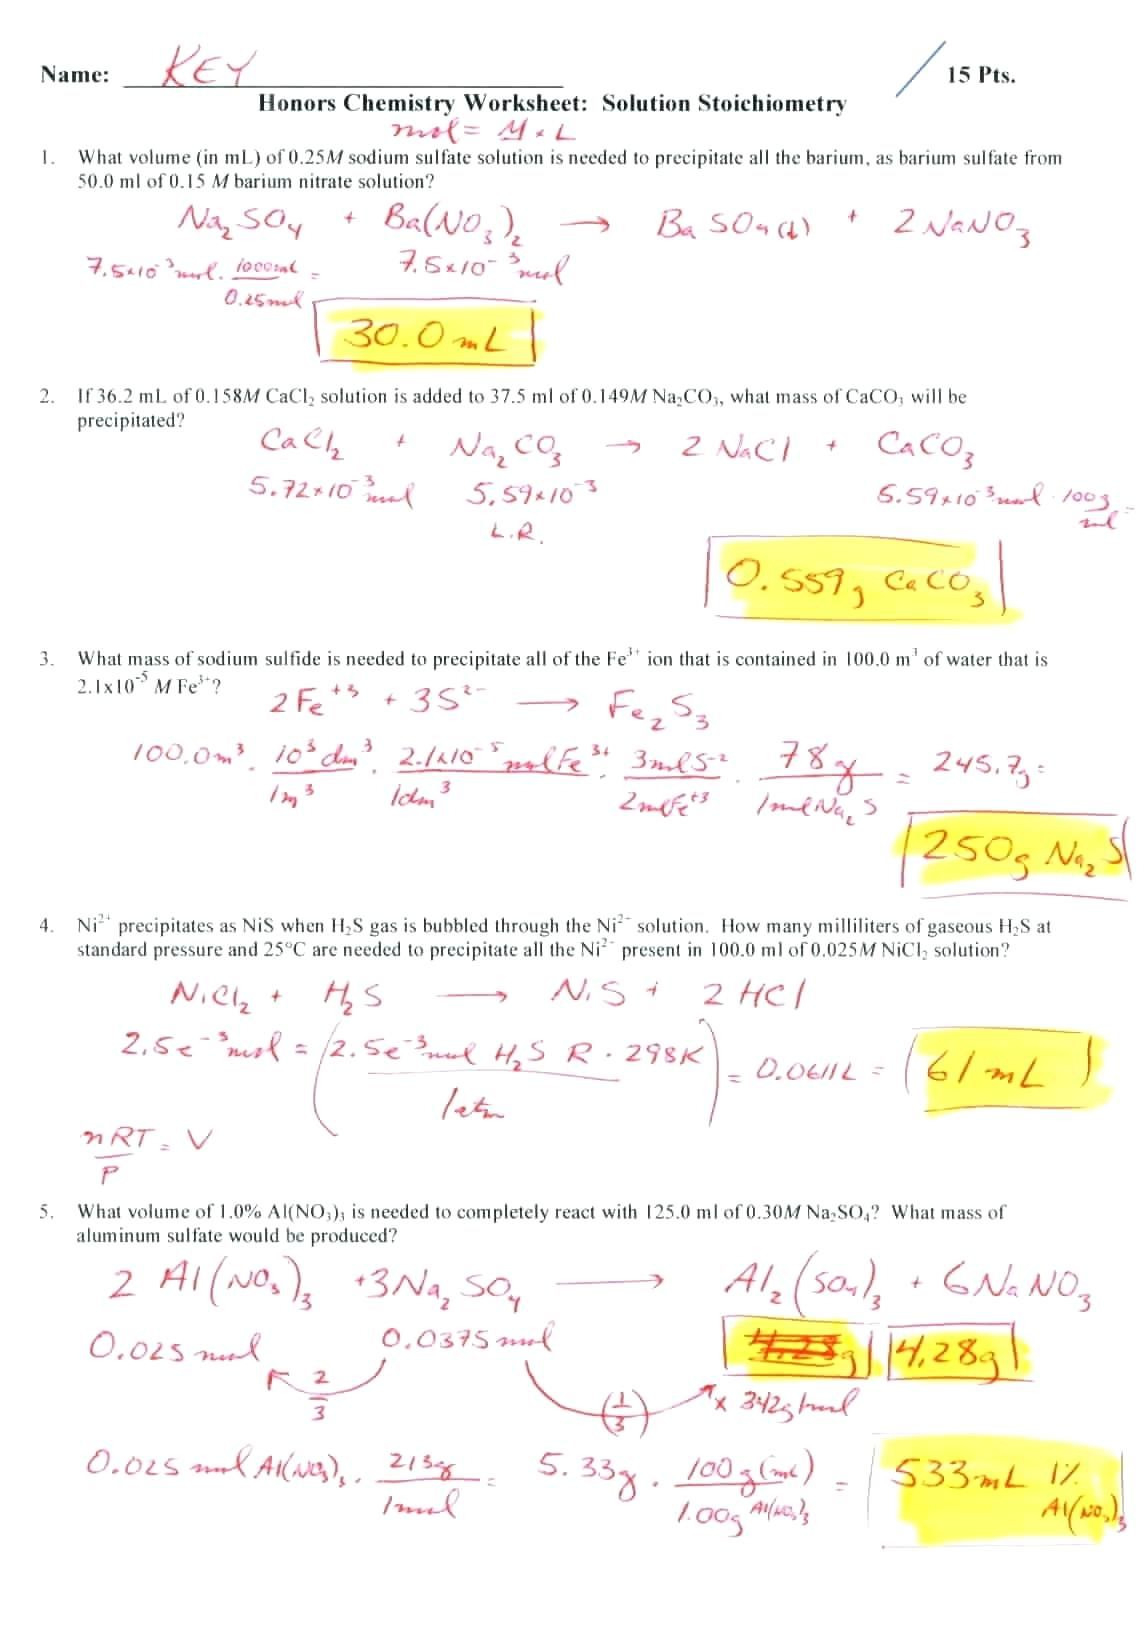 Name: KEY / 15 Pts.
Honors Chemistry Worksheet: Solution Stoichiometry
mol = M × L
1. What volume (in mL) of 0.25M sodium sulfate solution is needed to precipitate all the barium, as barium sulfate from
50.0 ml of 0.15 M barium nitrate solution?
Na₂SO₄ + Ba(NO₃)₂ → BaSO₄(↓) + 2 NaNO₃
7.5×10⁻³ mol · 1000mL/0.25mol = 7.5×10⁻³ mol
30.0 mL
2. If 36.2 mL of 0.158M CaCl₂ solution is added to 37.5 ml of 0.149M Na₂CO₃, what mass of CaCO₃ will be
precipitated?
CaCl₂ + Na₂CO₃ → 2 NaCl + CaCO₃
5.72×10⁻³ mol 5.59×10⁻³ 5.59×10⁻³ mol · 100g/mol =
L.R.
0.559g CaCO₃
3. What mass of sodium sulfide is needed to precipitate all of the Fe³⁺ ion that is contained in 100.0 m³ of water that is
2.1x10⁻⁵ M Fe³⁺?
2Fe⁺³ + 3S²⁻ → Fe₂S₃
100.0m³ · 10³dm³/1m³ · 2.1×10⁻⁵ molFe³⁺/1dm³ · 3molS⁻²/2molFe⁺³ · 78g/1molNa₂S = 245.7g =
250g Na₂S
4. Ni²⁺ precipitates as NiS when H₂S gas is bubbled through the Ni²⁻ solution. How many milliliters of gaseous H₂S at
standard pressure and 25°C are needed to precipitate all the Ni²⁻ present in 100.0 ml of 0.025M NiCl₂ solution?
NiCl₂ + H₂S → NiS + 2 HCl
2.5e⁻³mol = (2.5e⁻³mol H₂S R · 298K/1atm) = 0.0611L = 61 mL
nRT/P = V
5. What volume of 1.0% Al(NO₃)₃ is needed to completely react with 125.0 ml of 0.30M Na₂SO₄? What mass of
aluminum sulfate would be produced?
2 Al(NO₃)₃ +3Na₂SO₄ → Al₂(SO₄)₃ + 6NaNO₃
0.025 mol 0.0375 mol 4.28g
2/3 (1/3) × 342g/mol
0.025 mol Al(NO₃)₃ · 213g/1mol = 5.33g · 100g(mL)/1.00g Al(NO₃)₃ = 533mL 1% Al(NO₃)₃